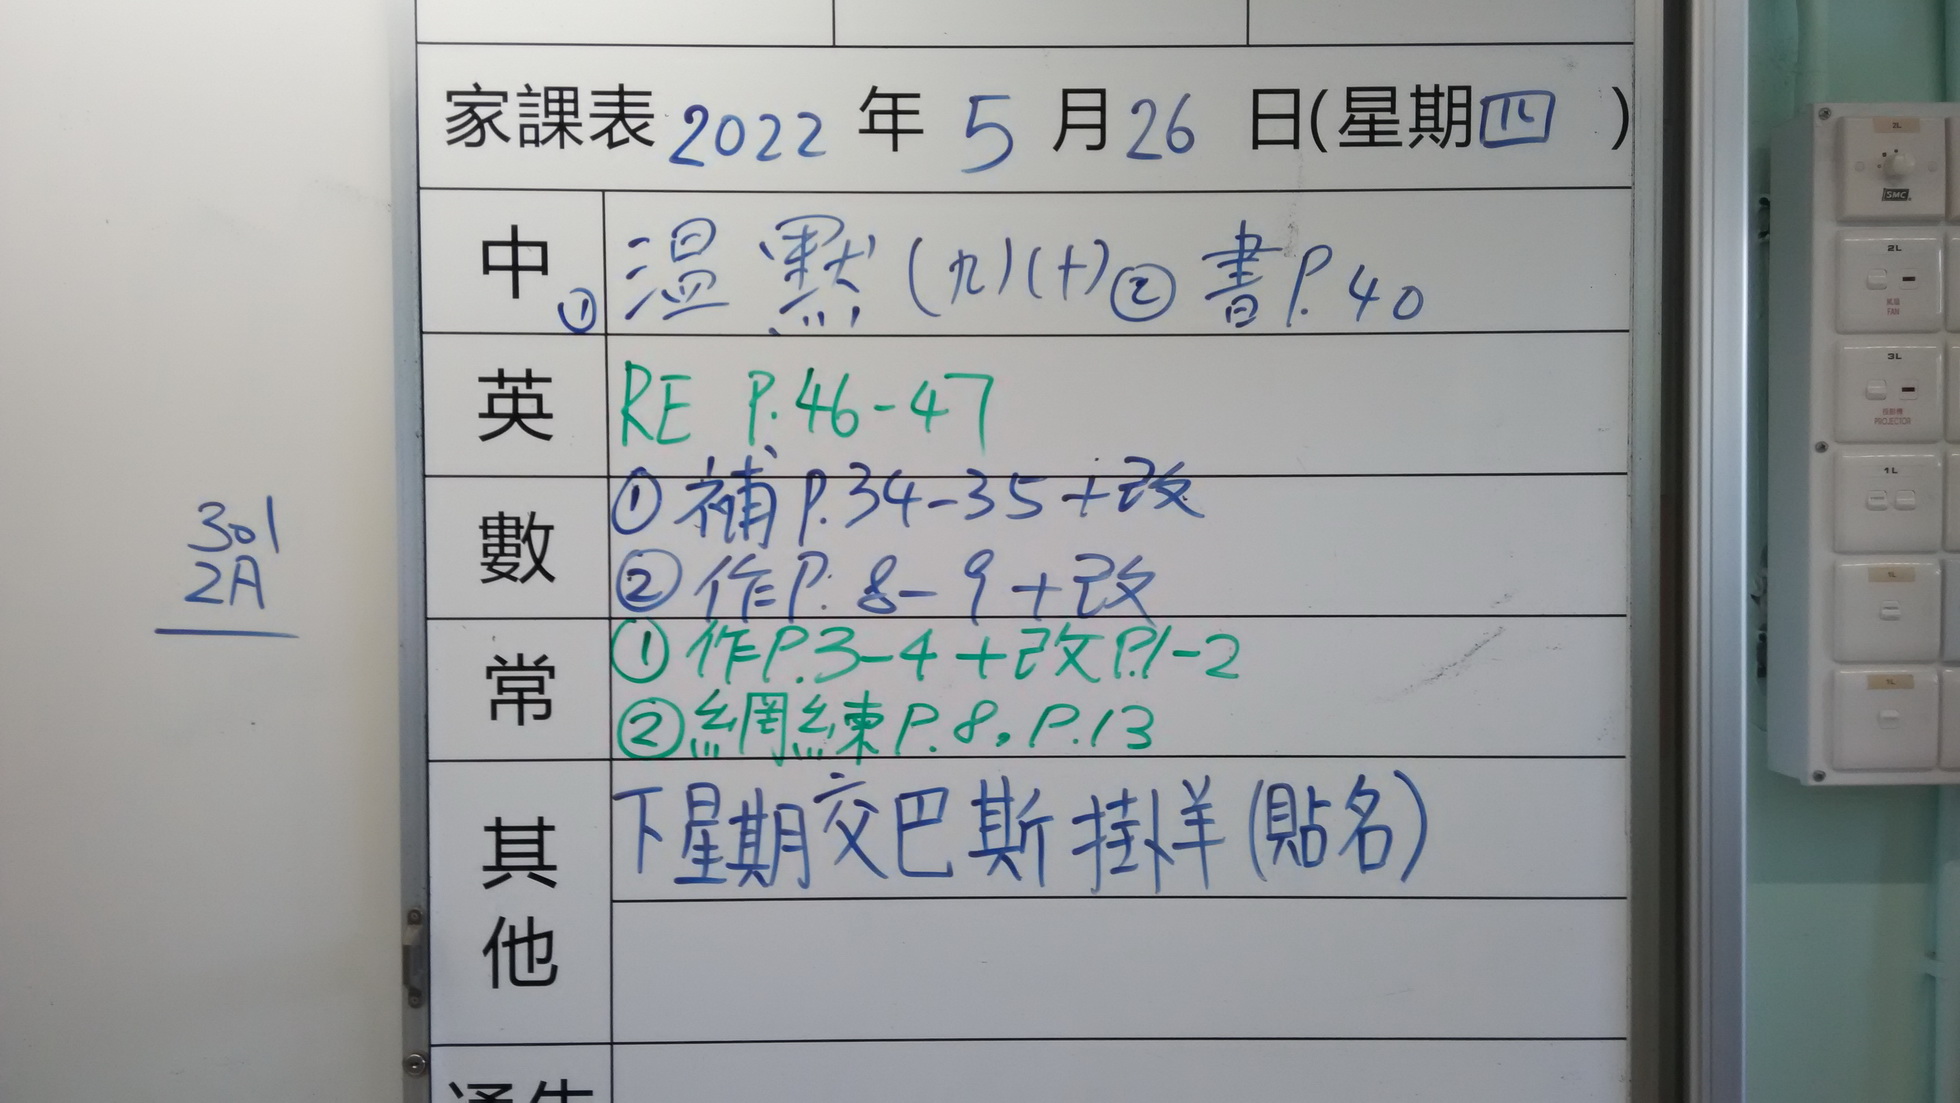 家課表 2022 年 5 月 26 日(星期四)
中 ①温默(九)(十)②書P.40
英 RE P.46-47
數 ①補P.34-35+改
②作P.8-9+改
常 ①作P.3-4+改P.1-2
②網練P.8,P.13
其他 下星期交巴斯掛洋(貼名)
通告
301
2A
2L
SMC
2L
風扇
FAN
3L
投影機
PROJECTOR
1L
1L
1L